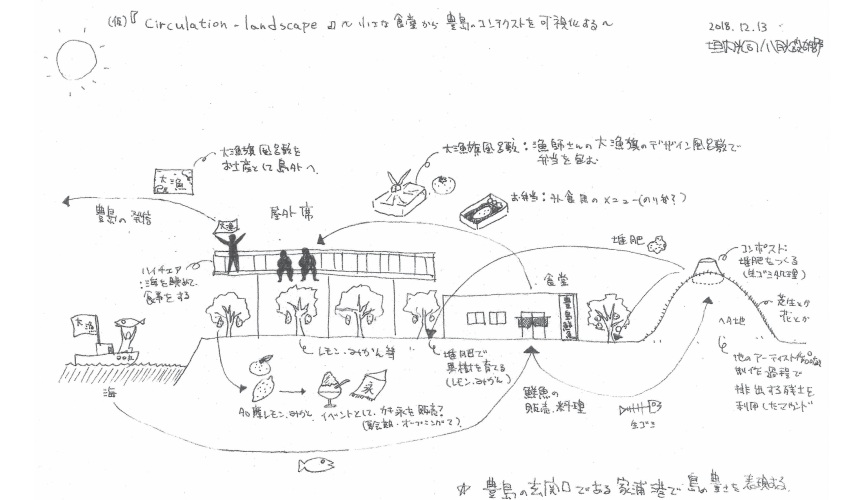 (仮)『Circulation - landscape 』 ～小さな食堂から豊島のコンテクストを可視化する～
2018.12.13
大漁旗風呂敷を
お土産として島外へ
大漁
豊島の発信
屋外席
大漁旗風呂敷：漁師さんの大漁旗のデザイン風呂敷で
弁当を包む
お弁当：外食用のメニュー(のり弁？)
ハイチェア
：海を眺めて
食事をする
大漁
大漁
海
レモン・みかん等
堆肥で
果樹を育てる
(レモン・みかん)
食堂
豊島食堂
堆肥
コンポスト：
堆肥をつくる
(生ゴミ処理)
芝生とか
花とか
空地
他のアーティスト作品の
制作過程で
排出する残土を
利用したマウンド
収穫レモン・みかん
イベントとして、カキ氷を販売？
氷
鮮魚の
販売、料理
生ゴミ
☆ 豊島の玄関口である家浦港で島の豊さを表現する